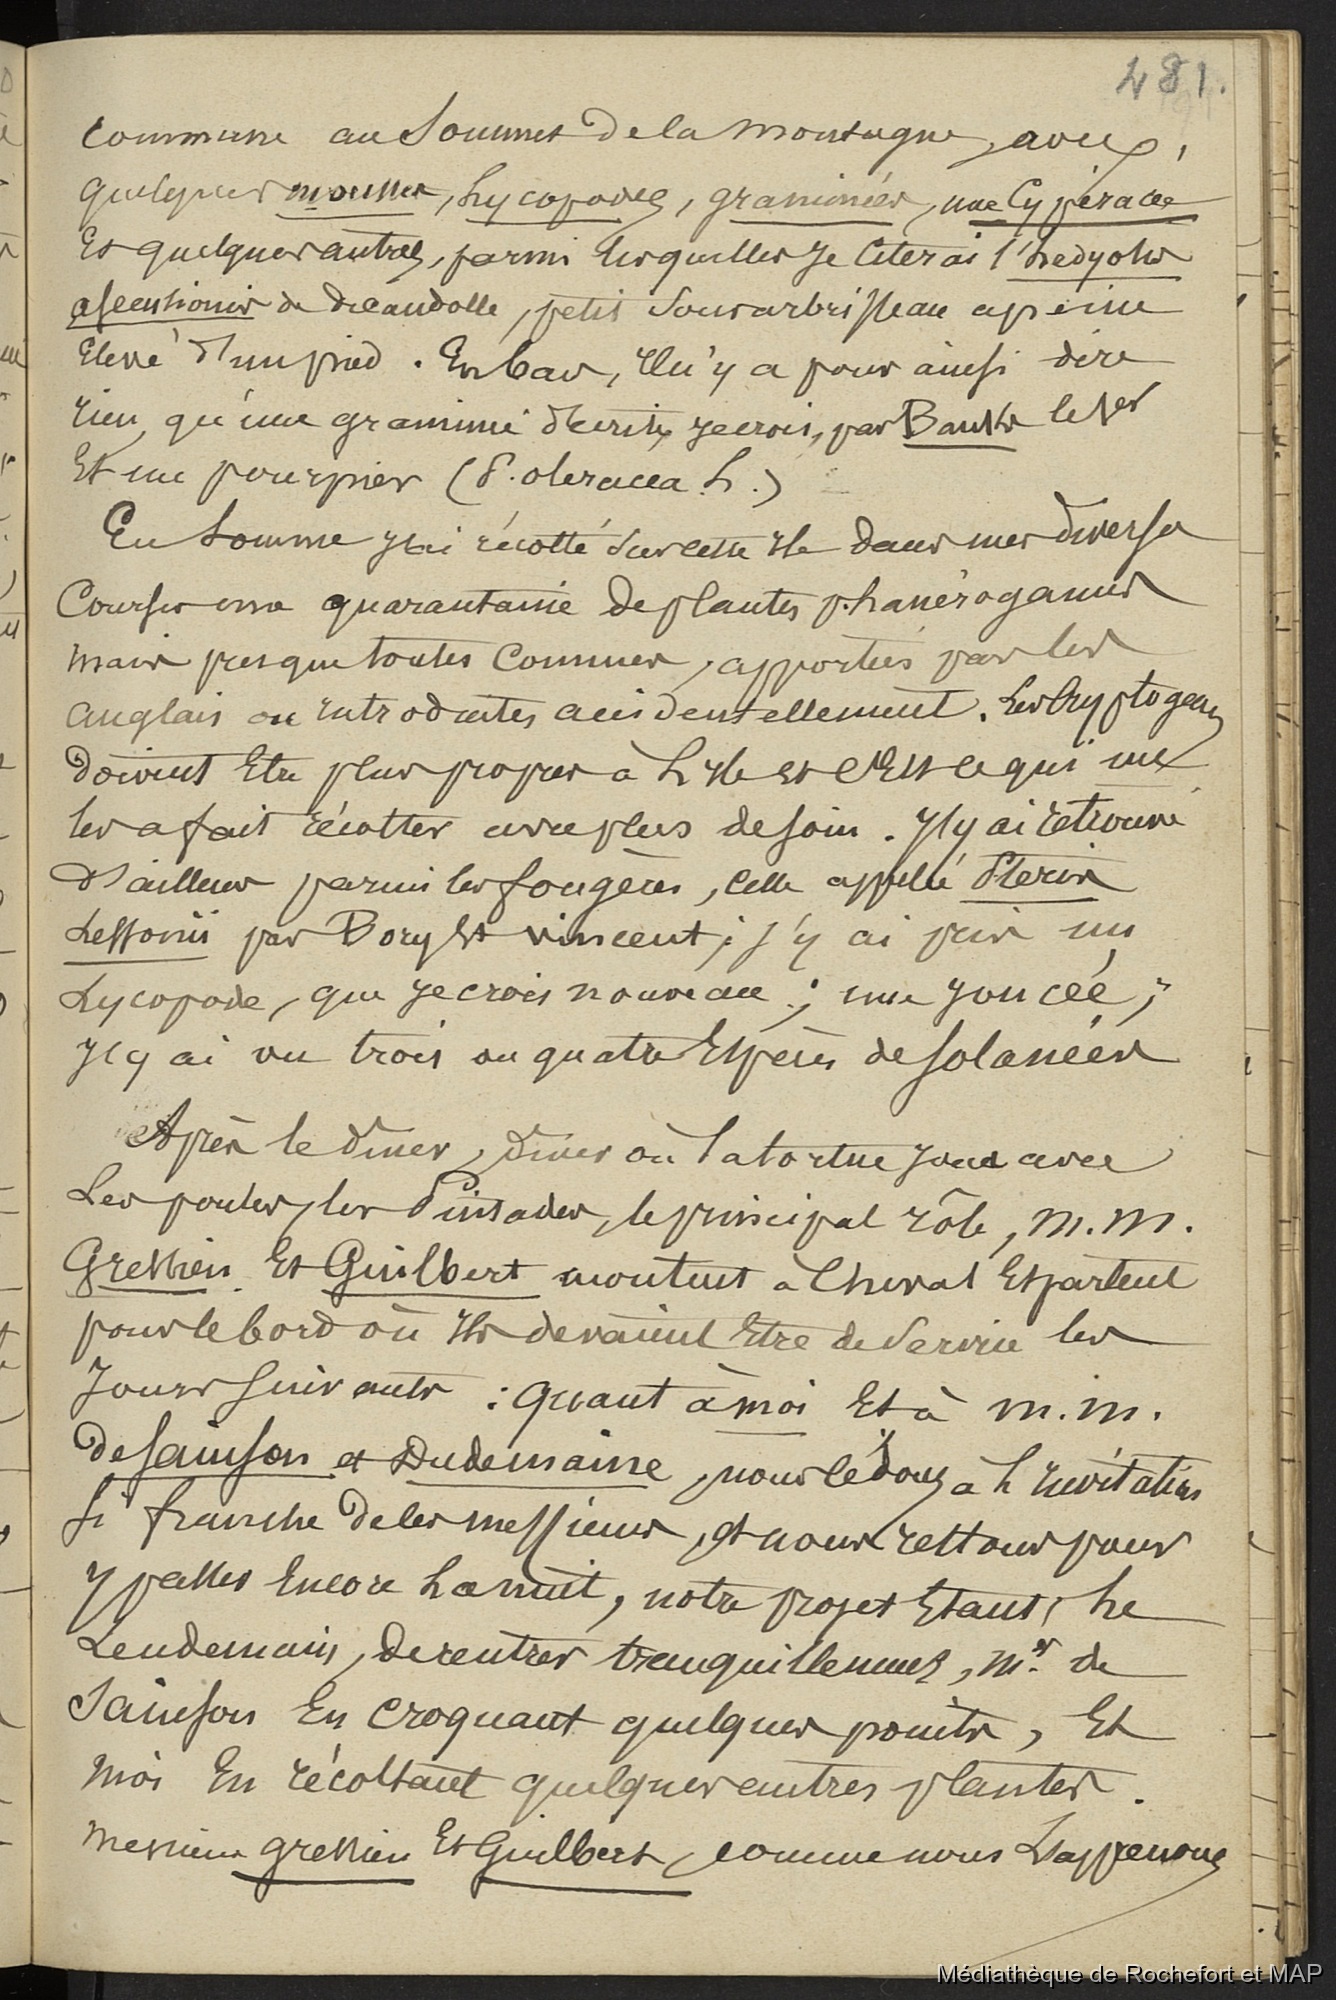 481.
Commune au Sommet de la montagne, avec,
quelques mousses, Lycopodes, graminées, une Cypéracée
Et quelques autres, parmi lesquelles je Citerai l'hedyotis
ascensionis de Décandolle, petit Sousarbrisseau apeine
Elevé d'un pied. En bas, Il n'y a pour ainsi dire
rien, qu'une graminé décrite, je crois, par Banks
Et un pourpier (P. oleracea. L.)
En Somme j'ai récolté Sur cette Ile dans mes diverses
Courses une quarantaine de plantes phanérogames
mais presque toutes Connues, apportées par les
anglais ou introduites accidentellement. Les Cryptogames
doivent Etre plus propres à L'Ile et c'Est ce qui me
les a fait récotter avec plus de soin. J'y ai retrouvé
d'ailleurs parmi les fougères, celle appellé Pteris
Lessonii par Bory St vincent; j'y ai pris un
Lycopode, que je crois nouveau; une joncée;
J'y ai vu trois ou quatre Espèces de solanées
Après le dîner, dîner où la tortue joua avec
Les poules, les Pintades, le principal rôle, m.m.
Gressien Et Guilbert montent à Cheval Et partent
pour le bord où Ils devaient Etre de Service les
Jours suivants : quant à moi Et à m.m.
de Sainson et Dudemaine, nous cédons à L'invitation
si franche de ces messieurs, et nous restons pour
y passer Encore La nuit, notre projet Etant, Le
Lendemain, de rentrer tranquillement, mr. de
Sainson En croquant quelques points, Et
moi En récoltant quelques autres plantes.
messieurs gressien Et Guilbert, comme nous L'apprenons
Médiathèque de Rochefort et MAP